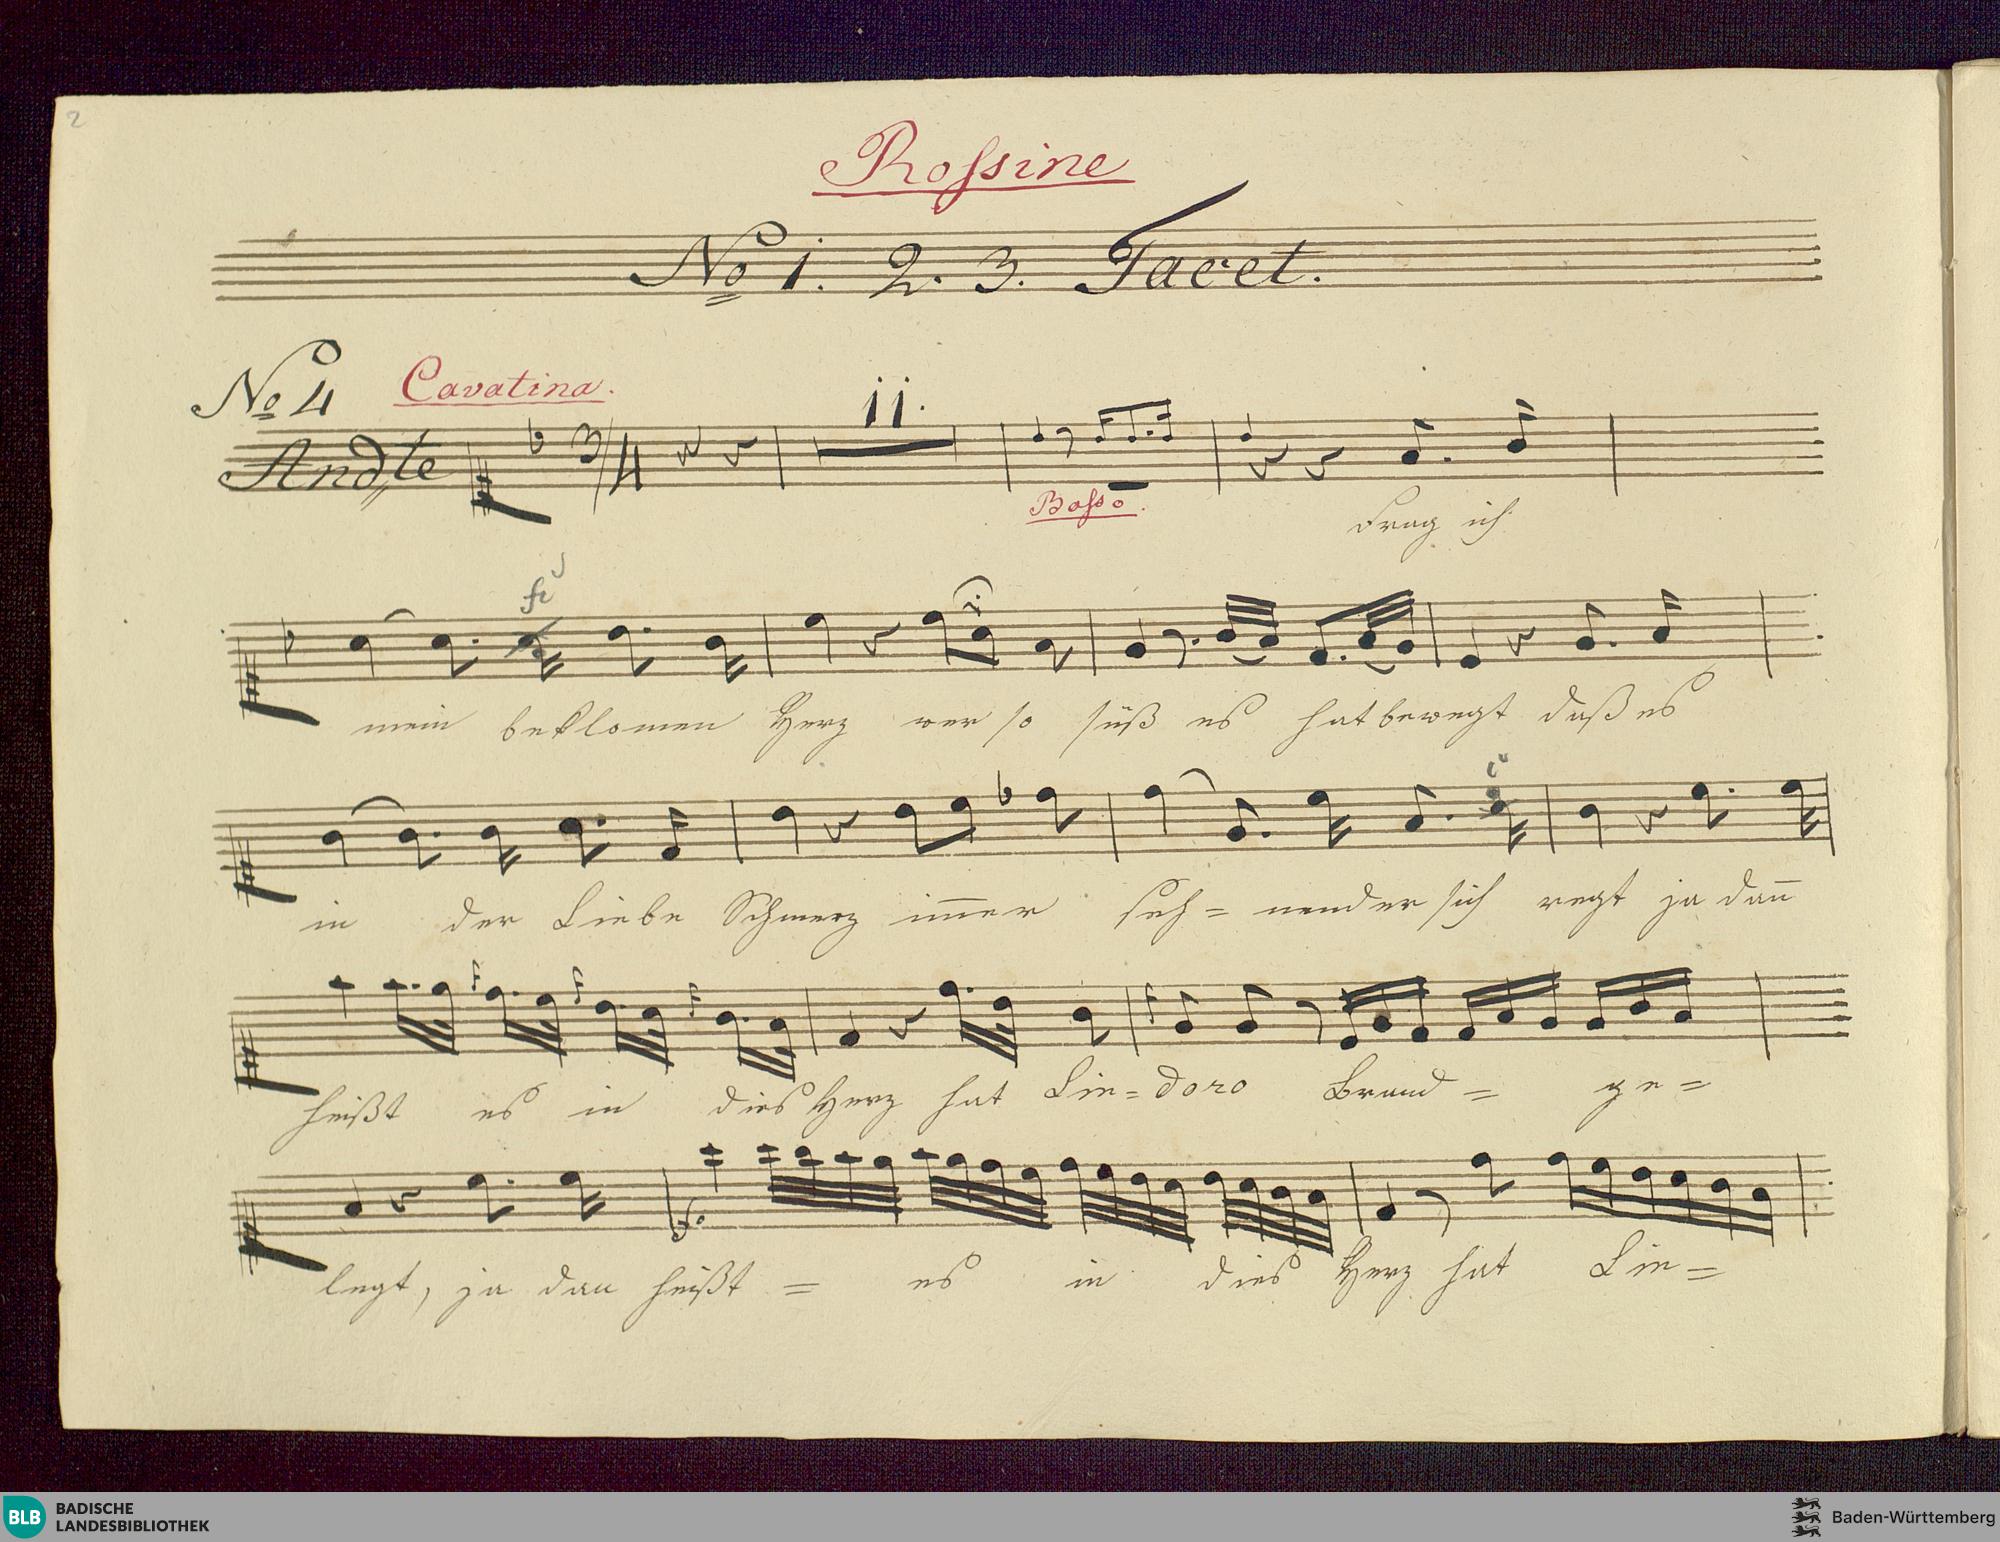 2
Rossine
No 1. 2. 3. Tacet.
No 4 Cavatina.
Andte 3/4 11.
Basso.
Frag ich
mein beklomen Herz wer so süß es hat bewegt daß es
in der Liebe Schmerz im̅er seh= nender sich regt ja dan̅
heißt es in dies Herz hat Lin=doro Brand= ge=
legt, ja dan heißt= es in dies Herz hat Lin=
BLB BADISCHE
LANDESBIBLIOTHEK
Baden-Württemberg